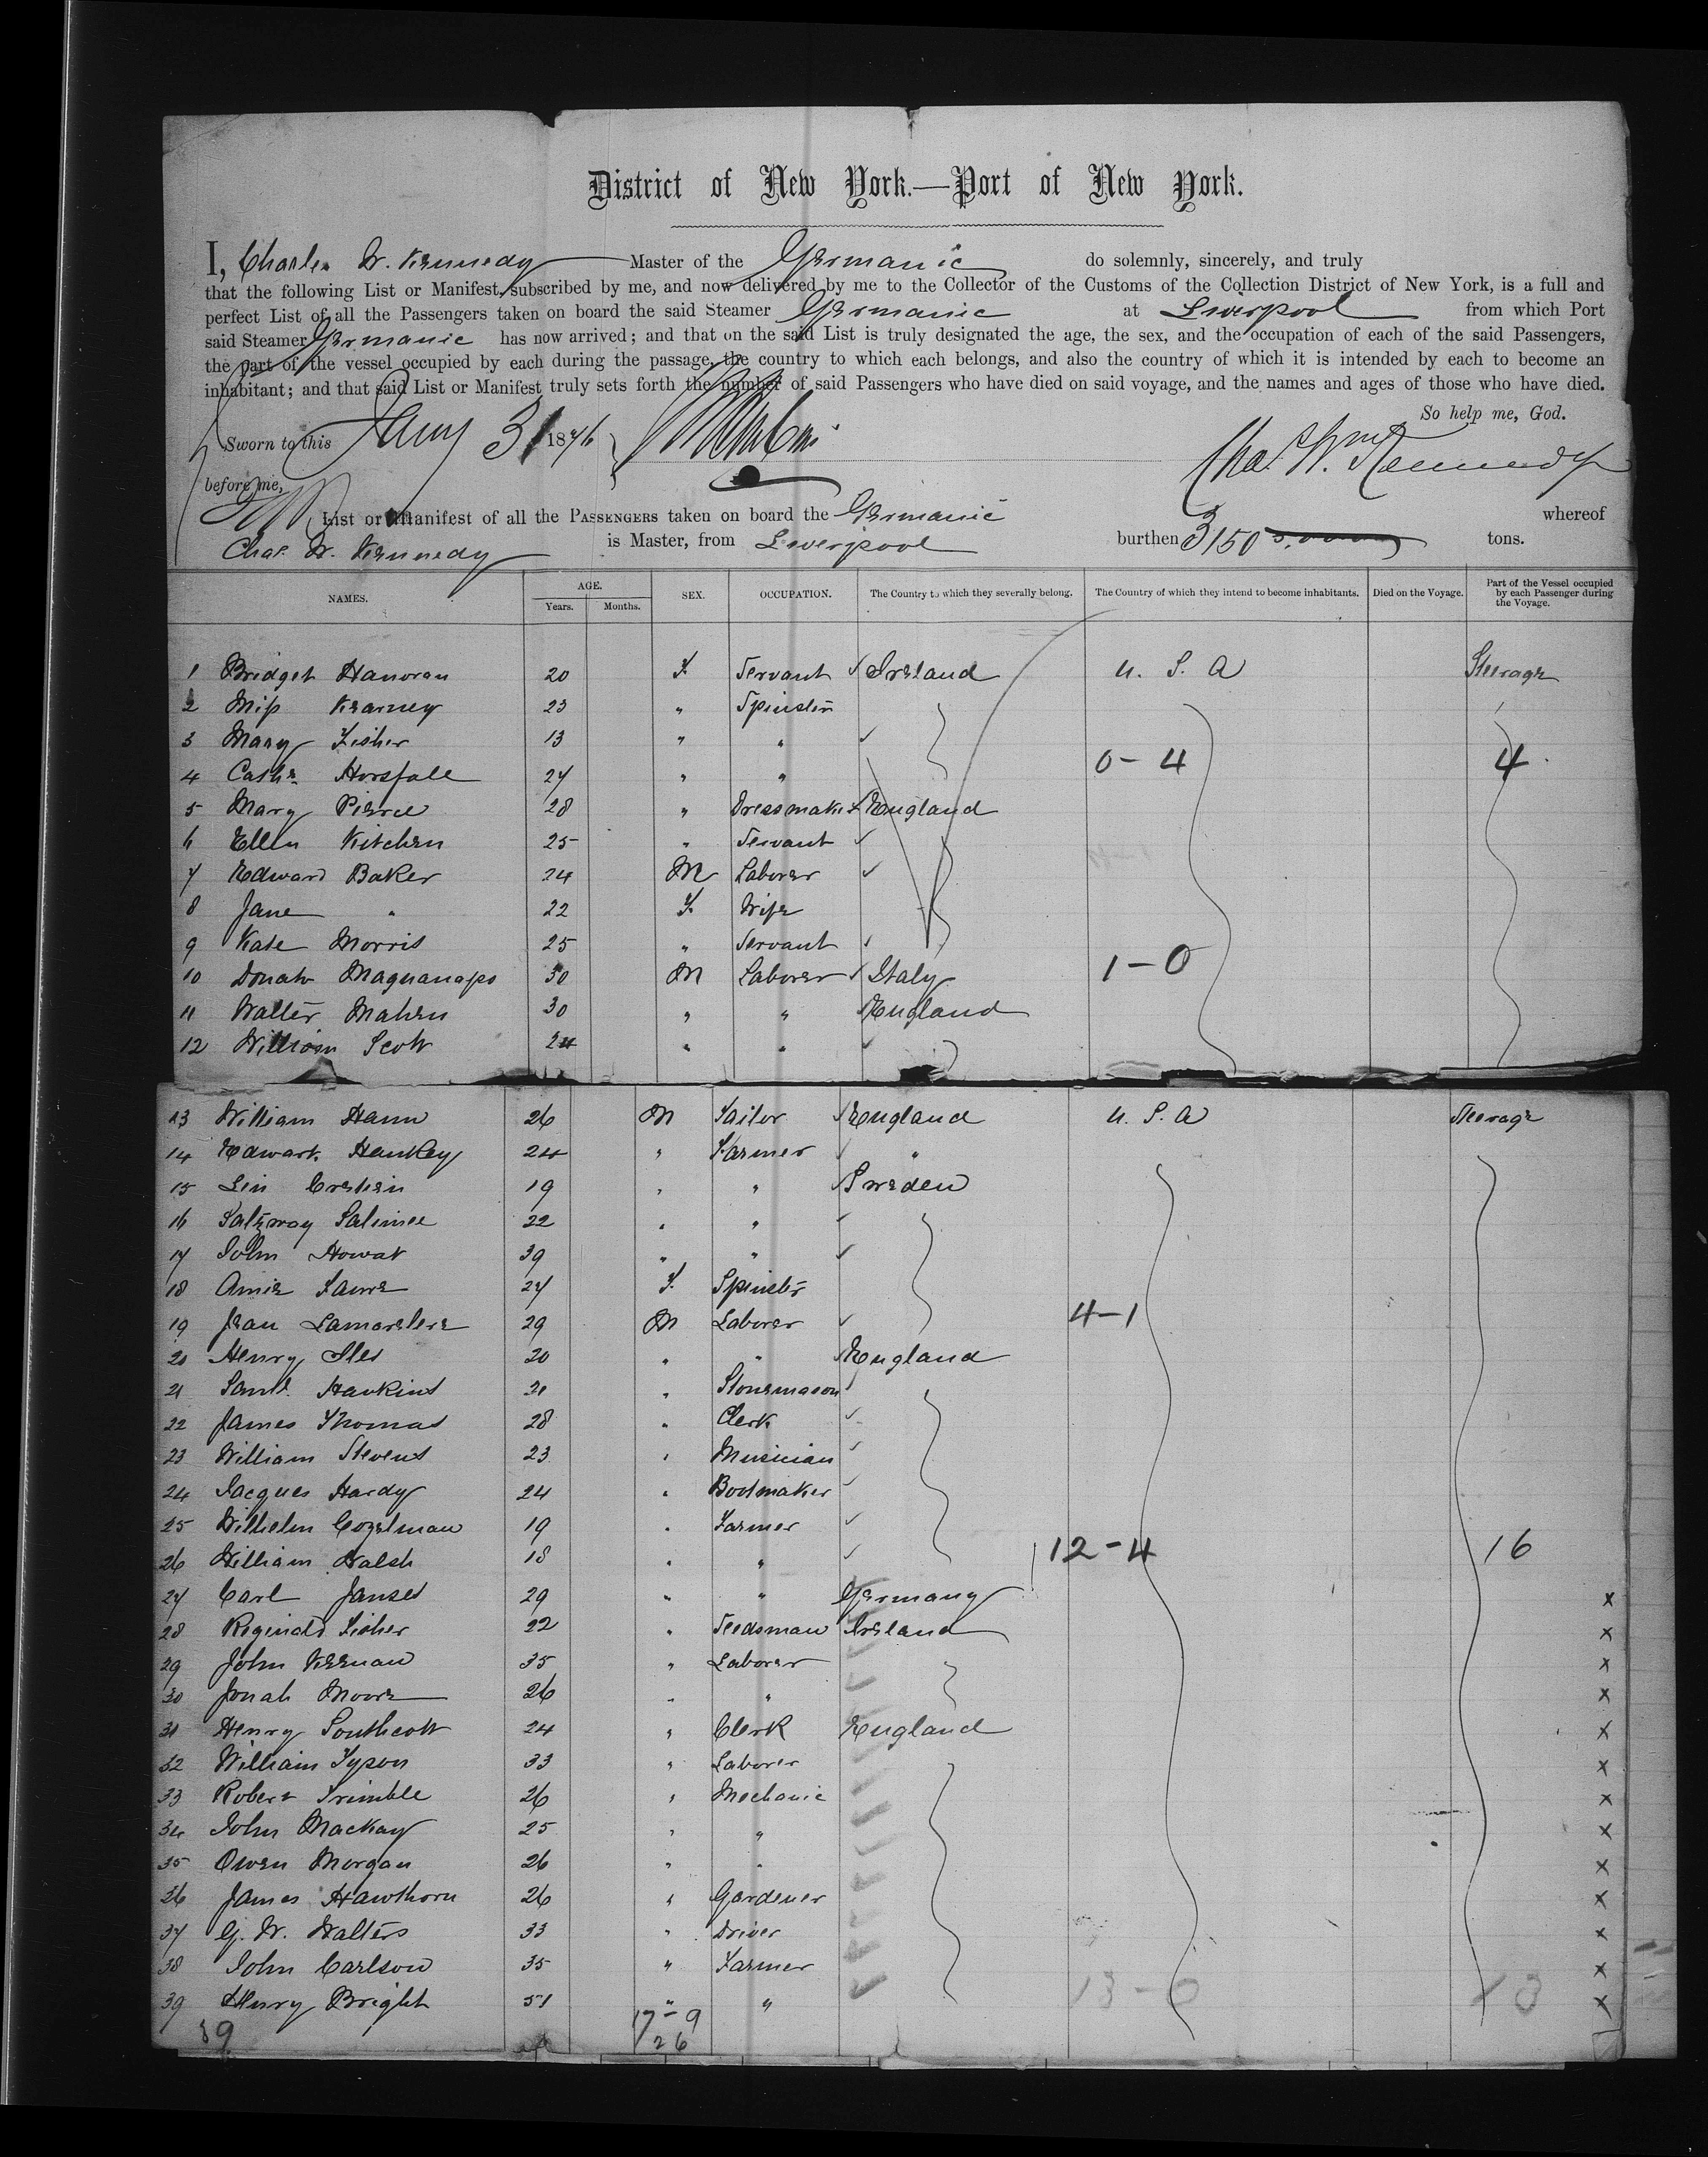 District of New York.—Port of New York.
I, Charles W. Kennedy Master of the Germanic do solemnly, sincerely, and truly
that the following List or Manifest, subscribed by me, and now delivered by me to the Collector of the Customs of the Collection District of New York, is a full and
perfect List of all the Passengers taken on board the said Steamer Germanic at Liverpool from which Port
said Steamer Germanic has now arrived; and that on the said List is truly designated the age, the sex, and the occupation of each of the said Passengers,
the part of the vessel occupied by each during the passage, the country to which each belongs, and also the country of which it is intended by each to become an
inhabitant; and that said List or Manifest truly sets forth the number of said Passengers who have died on said voyage, and the names and ages of those who have died.
So help me, God.
Sworn to this Jany 31 1876
Chas. Wm Kennedy
before me,
List or Manifest of all the PASSENGERS taken on board the Germanic whereof
Chas. W. Kennedy is Master, from Liverpool burthen 3150 tons.
NAMES. AGE. Years. Months. SEX. OCCUPATION. The Country to which they severally belong. The Country of which they intend to become inhabitants. Died on the Voyage. Part of the Vessel occupied by each Passenger during the Voyage.
1 Bridget Hanoran 20 F. Servant Ireland U. S. A Steerage
2 Miss Kearney 23 " Spinster
3 Mary Fisher 13 " "
4 Cathe Horsfall 27 " " 0-4 4
5 Mary Pierce 28 " Dressmaker England
6 Ellen Kitchen 25 " Servant
7 Edward Baker 24 M Laborer
8 Jane " 22 F. Wife
9 Kate Morris 25 " Servant
10 Donato 30 M Laborer Italy 1-0
11 Walter Mahen 30 " " England
12 William Scott 24 " "
13 William Hann 26 M Tailor England U. S. A Steerage
14 Edward Hankey 24 " Farmer "
15 19 " " Sweden
16 22 " "
17 John Howat 39 " "
18 27 F. Spinster
19 Jean 29 M Laborer 4-1
20 Henry Iles 20 " " England
21 Saml. Hawkins 21 " Stonemason
22 James Thomas 28 " Clerk
23 William Stevens 23 " Musician
24 Jacques Hardy 24 " Bootmaker
25 Wilhelm Cozelman 19 " Farmer
26 William Walsh 18 " " 12-4 16
27 Carl Janses 29 " " Germany x
28 Reginald Fisher 22 " Seedsman Ireland x
29 John Keenan 35 " Laborer x
30 Jonah Moore 26 " " x
31 Henry Southcott 24 " Clerk England x
32 William Tyson 33 " Laborer x
33 Robert Trimble 26 " Mechanic x
34 John Mackay 25 " " x
35 Owen Morgan 26 " " x
36 James Hawthorn 26 " Gardener x
37 G. W. Walters 33 " Driver x
38 John Carlson 35 " Farmer x
39 Henry Bright 51 " " 13-0 13 x
39 17-9
26